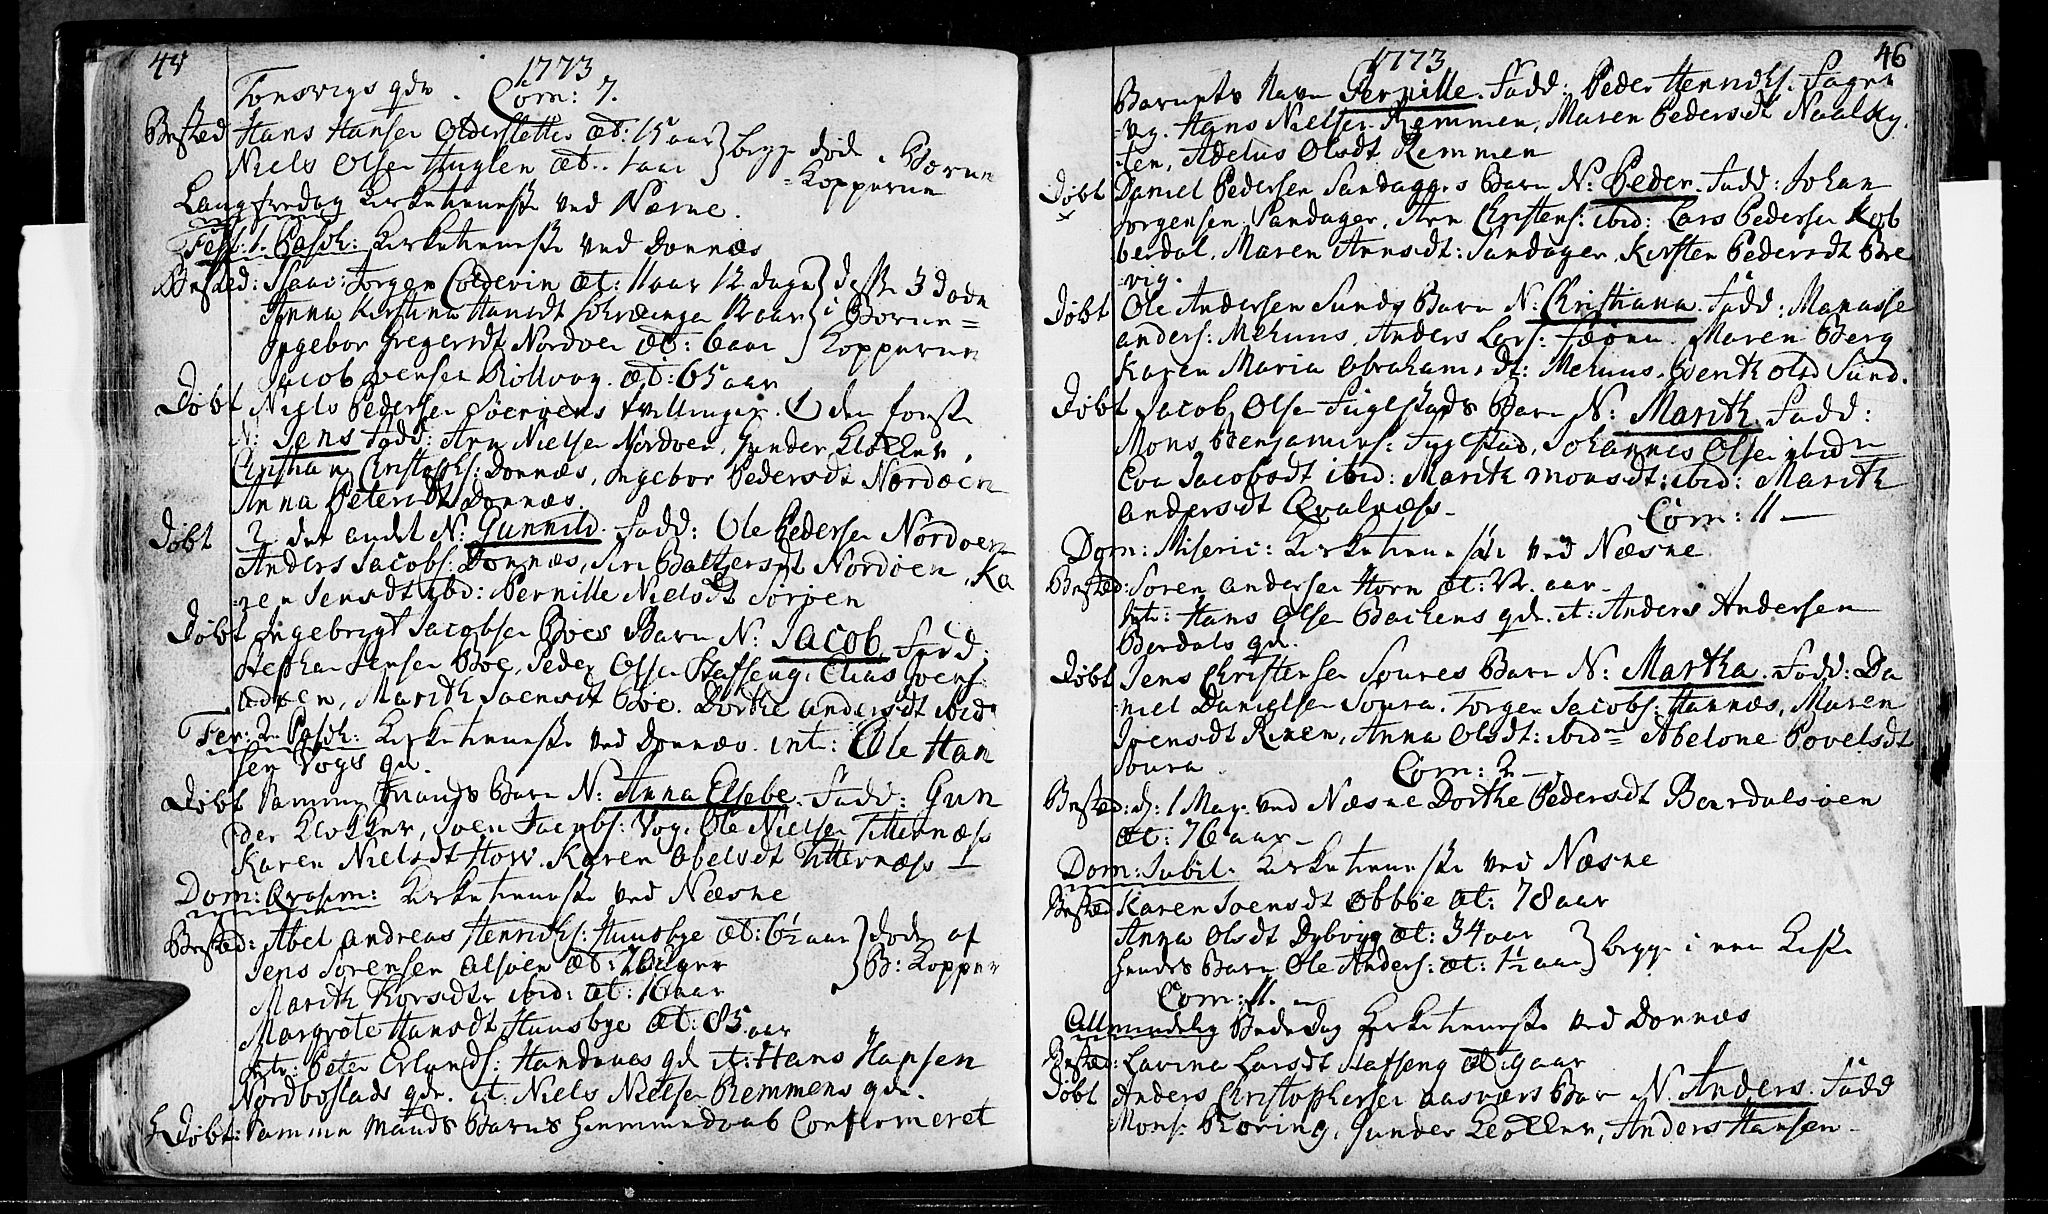 1773
Tonsvigs qdr. Com: 7.
Bested Hans Hansen Oldersletter æt: 15 aar
Niels Olsen Huglen æt: 1 aar } begge døde. Børne
=Kopperne
Langfredag Kirketienneste ved Nærne.
Fest: 1. Pasch: Kirketienneste ved Dønnæs
Bested: Isaac Jørgen Coldevin æt: 11 aar 12 dage } disse 3 døde
Anna Kirstina Hansdt 12 aar } i Børne=
Ingebor Gregersdt Nordøen æt: 6 aar } Kopperne
Jacob Joensen Rølvaag. æt: 65 aar
Døbt Niels Pedersen Søeroens tvillinger. 1) den første
N: Jens Fadd: Arn Nielsen Nordøen, Gunder Klokker,
Christian Christophs: Dønnæs, Ingebor Pedersdt Nordøen
Anna Petersdt Dønnæs.
Døbt 2 det andet N: Gunnild. Fadd: Ole Pedersen Nordøen
Anders Jacobs: Dønnæs, Siri Baltzersdt Nordøen, Ka
=ren Jensdt ibd: Pernille Nielsdt Sørøen
Døbt Ingebrigt Jacobsen Bøes Barn N: Jacob, Fadd:
Stephan Jensen Bøe, Peder Olsen Staffeng, Elias Joens
Marith Joensdt Bøe. Dorthe Andersdt ibid
Fer: 2. Pasch: Kirketienneste ved Dønnæs. int: Ole Han
sen Vogs qd.
Døbt Samme Mands Barn N: Anna Elsebe. Fadd: Gun
der Klokker, Joen Jacobs: Vog. Ole Nielsen Titternæss
Karen Nielsdt How. Karen Abelsdt Titternæss
Dom: Qvasim: Kirketienneste ved Næsne
Bested: Abel Andreas Henrichs: Hunsbye æt: 6½ aar } døde af
Jens Sørensen Alsøen } B: Kopper
Marith ibid: æt: 16 aar
Margrete Hansdt Hunsbye æt: 85 aar
Intr: Peter Erlands: Handnæs qd it: Hans Hansen
Nordbostads qdr. it: Niels Nielsen Remmens qdr.
Døbt: Samme Mands Barns Hiemmedaab Confirmeret
1773 46
Barnets Navn Pernille. Fadd: Peder Henrichs. Fager
=vig. Hans Nielsen Remmen, Maren Pedersdt Naalsky
=ten, Adelus Olsdt Remmen
Døbt Daniel Pedersen Sandagers Barn N: Peder. Fadd: Johan
Jørgensen Sandager, Arn Christens: ibid: Lars Pedersen Kob
berdal, Maren Arnsdt: Sandager, Kirsten Pedersdt Bre
vig.
Døbt Ole Andersen Sunds Barn N: Christiana. Fadd: Manasse
Anders: Mehuus, Anders Lars: Maren Berg
Karen Maria Abrahamsdt: Mehuus. Berith Olsd Sund.
Døbt Jacob Olsen Fuglstads Barn N: Marith. Fadd:
Mons Benjamins: Fuglstad, Johannes Olsen ibid
Eva Jacobsdt ibid: Marith Monsdt: ibid: Marith
Andersdt Qvalnæss. Com: 11
Dom: Miseric: Kirketienneste ved Næsne
Bested: Søren Andersen Horn æt: 22. aar
Int: Hans Olsen Backens qdr. it: Anders Andersen
Berdals qd.
Døbt Jens Christensen Soures Barn N: Martha. Fadd: Da
=niel Danielsen Soura. Torger Jacobs: Hannæs, Maren
Joensdt Remen, Anna Olsdt: ibid Abelone Povelsdt
Soura. Com: 2
Bested: d: 1 May. ved Næsne Dorthe Pedersdt Beerdalsøen
æt: 76 aar
Dom: Jubil. Kirketienneste ved Næsne
Bested Karen Joensdt Øbbøe æt: 78 aar
Anna Olsdt Dybvig æt: 34 aar
Hendes Barn Ole Anders: æt: 1½ aar } begge i een Kiste
Com: 11.
Allmindelig Bededag Kirketienneste ved Dønnæs
Bested: Lavina Larsdt Staffeng æt: 9 aar
Døbt Anders Christophersen Aasværs Barn N. Anders. Fadd
Mons Røring, Gunder Klokker, Anders Hansen